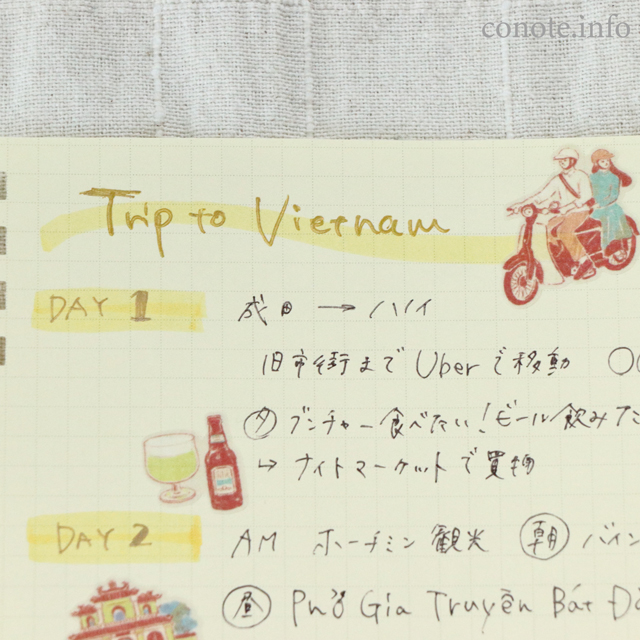 conote.info
Trip to Vietnam
DAY 1 成田 → ハノイ
旧市街まで Uberで移動 ○
夕 ブンチャー食べたい!ビール飲みた
↳ ナイトマーケットで買物
DAY 2 AM ホーチミン観光 朝 バイン
昼 Phở Gia Truyền Bát Đà